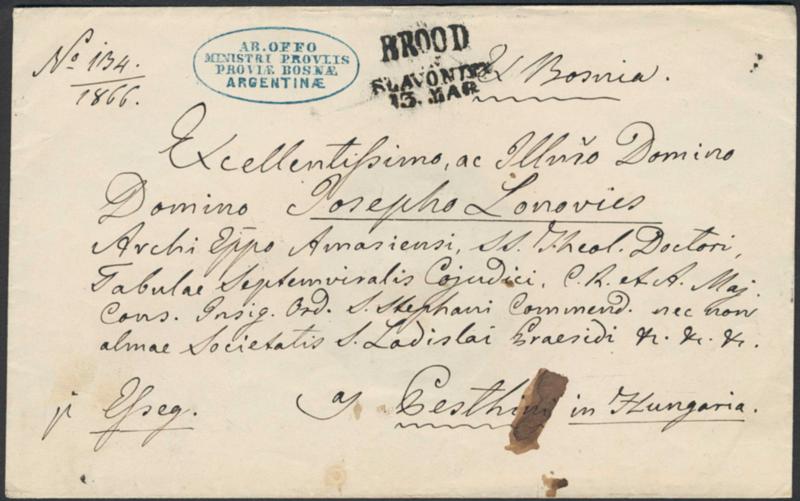 No 134.
1866.
AB.OFFO
MINISTRI PROVLIS
PROVIÆ BOSNÆ
ARGENTINÆ
BROOD
IN
SLAVONIEN
13. MAR
Ex Bosnia.
Excellentissimo, ac Illmšo Domino
Domino Josepho Lonovics
Archi Eppo Amasiensi, SS. Theol. Doctori,
Tabulae Septemviralis Cojudici, C. R. et A. Maj.
Cons. Insig. Ord. S. Stephani Commend. nec non
almae Societatis S. Ladislai Praesidi &. &. &.
p Esseg.
Pesthini in Hungaria.